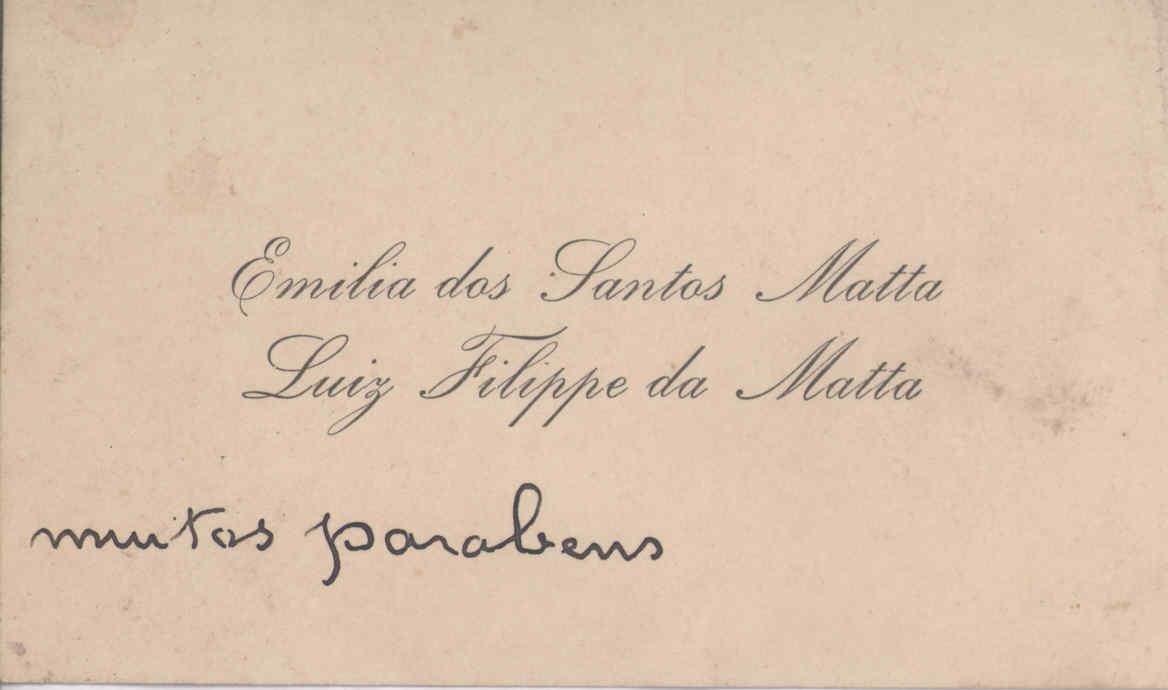 Emilia dos Santos Matta
Luiz Filippe da Matta
muitos parabens